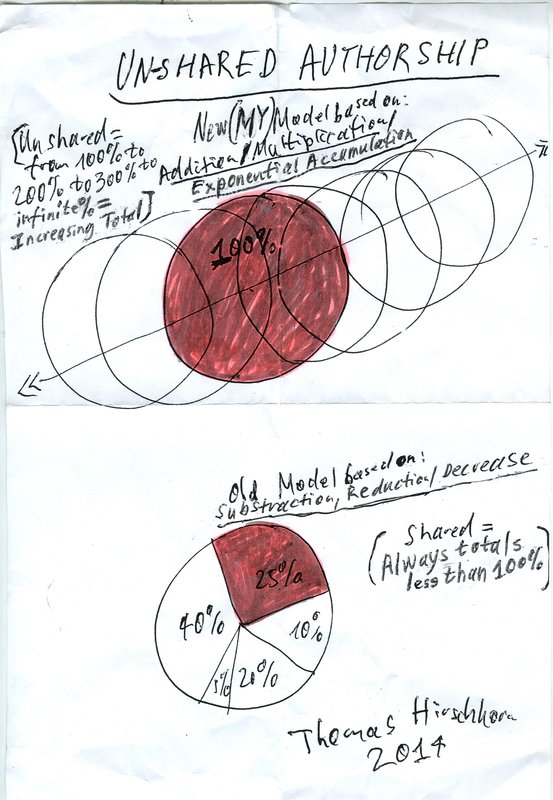 UN-SHARED AUTHORSHIP
[Unshared =
from 100% to
200% to 300% to
infinite% =
Increasing Total]
New (MY) Model based on:
Addition/Multiplication/
Exponential Accumulation
100%
Old Model based on:
Substraction, Reduction/Decrease
(Shared =
Always totals
less than 100%)
25%
40%
10%
5%
20%
Thomas Hirschhorn
2014